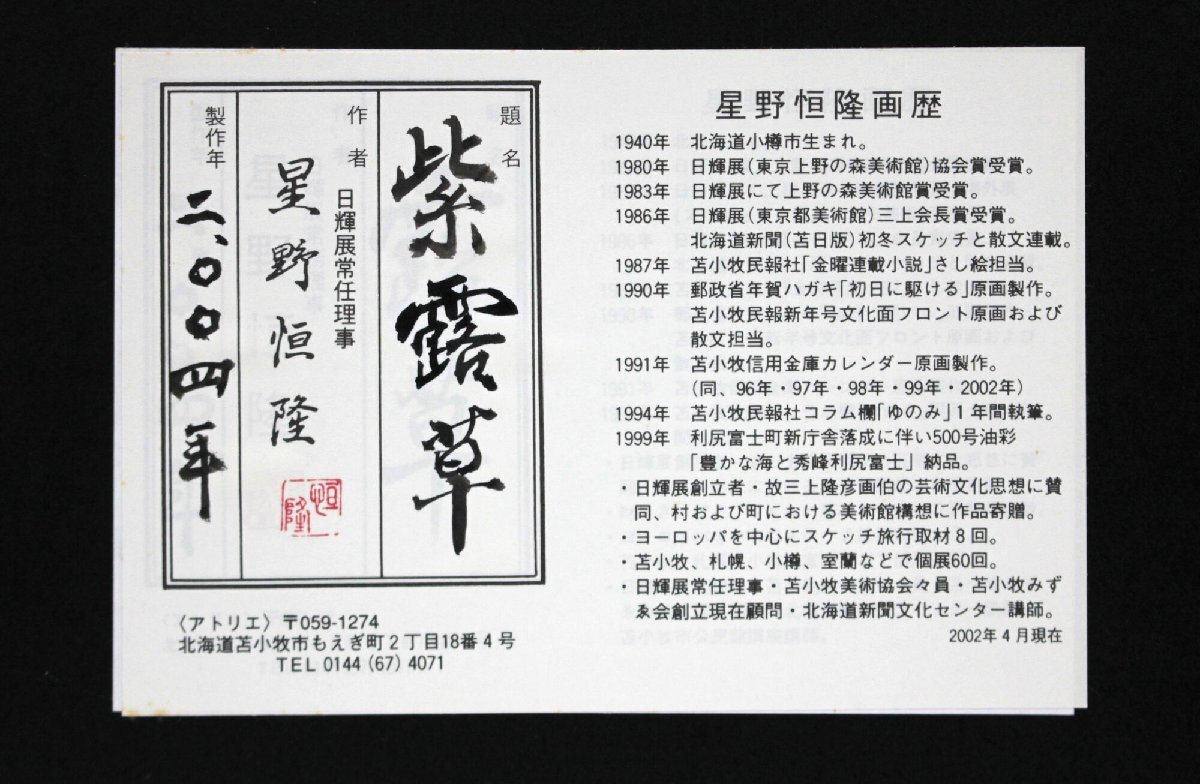 題名
紫露草
作者
日輝展常任理事
星野恒隆
恒隆
製作年
二、〇〇四年
〈アトリエ〉〒059-1274
北海道苫小牧市もえぎ町2丁目18番4号
TEL 0144 (67) 4071
星野恒隆画歴
1940年 北海道小樽市生まれ。
1980年 日輝展(東京上野の森美術館)協会賞受賞。
1983年 日輝展にて上野の森美術館賞受賞。
1986年 日輝展(東京都美術館)三上会長賞受賞。
北海道新聞(苫日版)初冬スケッチと散文連載。
1987年 苫小牧民報社「金曜連載小説」さし絵担当。
1990年 郵政省年賀ハガキ「初日に駆ける」原画製作。
苫小牧民報新年号文化面フロント原画および
散文担当。
1991年 苫小牧信用金庫カレンダー原画製作。
(同、96年・97年・98年・99年・2002年)
1994年 苫小牧民報社コラム欄「ゆのみ」1年間執筆。
1999年 利尻富士町新庁舎落成に伴い500号油彩
「豊かな海と秀峰利尻富士」納品。
・日輝展創立者・故三上隆彦画伯の芸術文化思想に賛
同、村および町における美術館構想に作品寄贈。
・ヨーロッパを中心にスケッチ旅行取材8回。
・苫小牧、札幌、小樽、室蘭などで個展60回。
・日輝展常任理事・苫小牧美術協会々員・苫小牧みず
ゑ会創立現在顧問・北海道新聞文化センター講師。
2002年4月現在